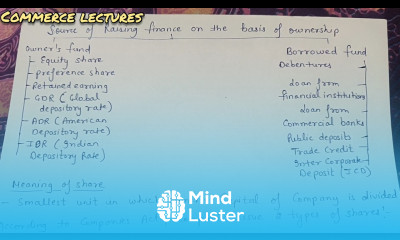 COMMERCE LECTURES
Source of Raising finance on the basis of ownership
Owner's fund
Equity share
preference share
Retained earning
GDR (Global
depository rate)
ADR (American
Depository rate)
IDR (Indian
Depository Rate)
Borrowed fund
Debentures
Loan from
financial institution
Loan from
Commercial banks
Public deposits
Trade Credit
Inter Corporate
Deposit (ICD)
Mind
Luster
Meaning of share
- Smallest unit in which capital of Company is divided
According to Companies types of shares